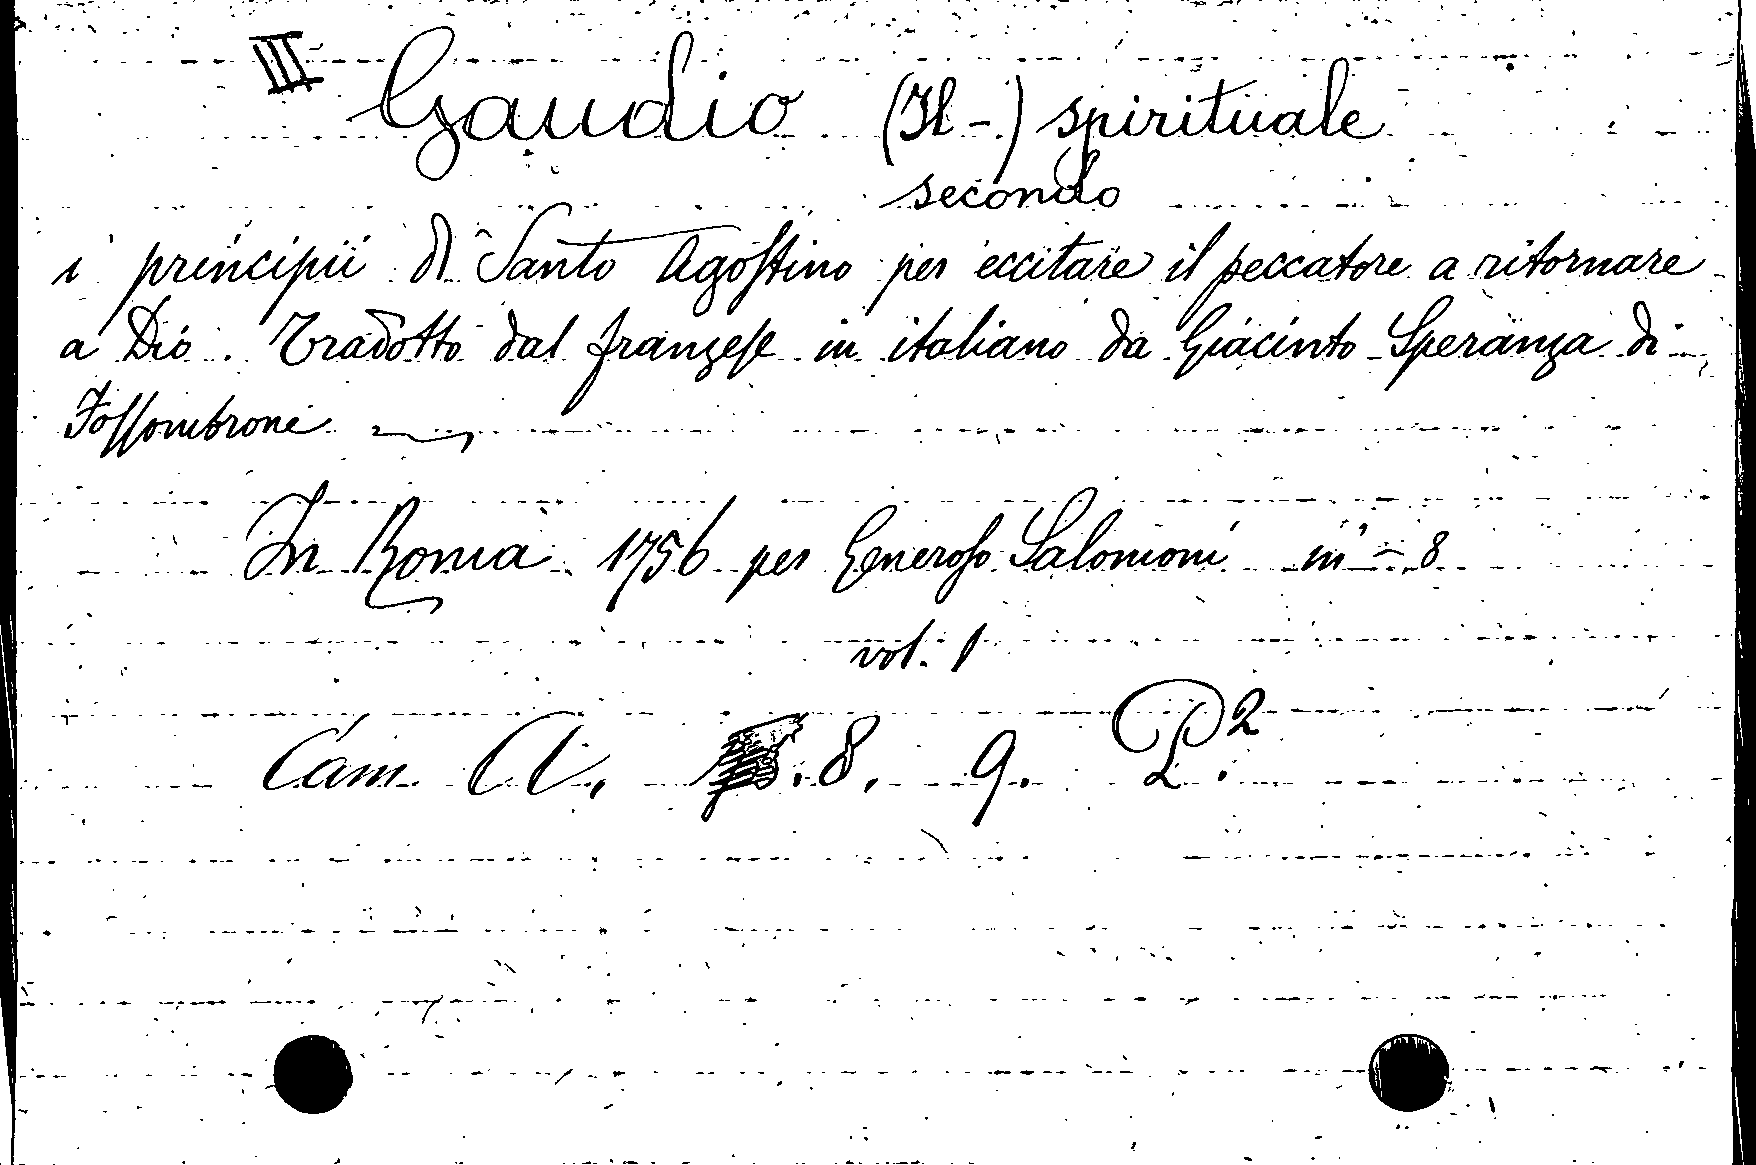 III Gaudio (Il -) spirituale
secondo
i principii di Santo Agostino per eccitare il peccatore a ritornare
a Dio. Tradotto dal franzese in italiano da Giacinto Speranza di
Fossombrone
In Roma 1756 per Generoso Salomoni in - 8
vol. 1
Cam. A. .8. 9. P.2